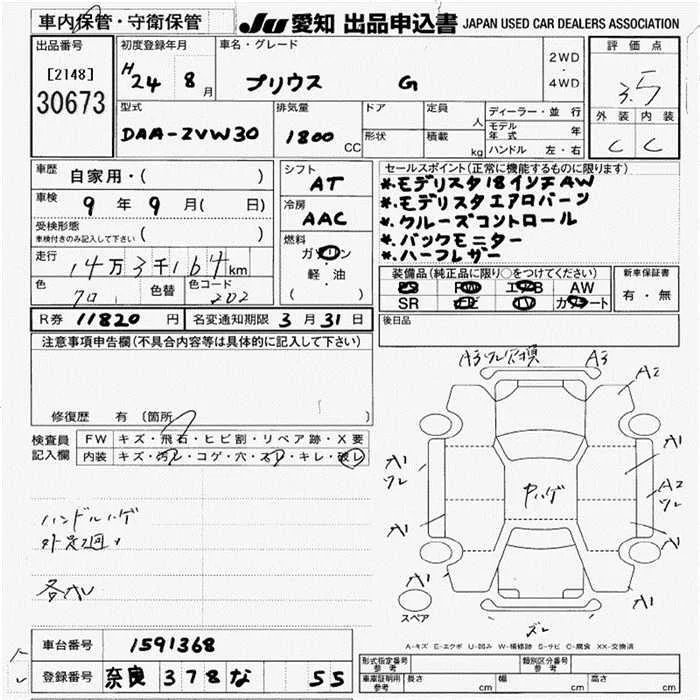 車内保管・守衛保管
JU 愛知 出品申込書 JAPAN USED CAR DEALERS ASSOCIATION
出品番号
[2148]
30673
初度登録年月
H24 8 月
車名・グレード
プリウス G
2WD
・
4WD
評価点
3.5
外装 内装
C C
型式
DAA-ZVW30
排気量
1800 CC
ドア
形状
定員 人
積載 kg
ディーラー・並行
モデル年式 年
ハンドル 左・右
車歴 自家用・( )
車検 9 年 9 月( 日)
受検形態
車検付きのみ記入して下さい ( )
走行 14万3千164 km
色 クロ 色替 色コード 202
シフト
AT
冷房
AAC
燃料
ガソリン
・
軽・油
( )
セールスポイント(正常に機能するものに限ります)
*.モデリスタ18インチAW
*.モデリスタエアロバーン
*.クルーズコントロール
*.バックモニター
*.ハーフレザー
装備品(純正品に限り○をつけてください)
PS PW エアB AW
SR ナビ TV カワシート
新車保証書
有・無
R券 11820 円 名変通知期限 3 月 31 日
後日品
注意事項申告欄(不具合内容等は具体的に記入して下さい)
修復歴 有 (箇所 )
検査員
記入欄
FW キズ・飛石・ヒビ割・リペア跡・X要
内装 キズ・汚レ・コゲ・穴・スレ・キレ・破レ
ハンドルハゲ
各スレ
A3 A3
A2
A1
A1
A2
A1
A1
A1
A1
A1
ヤハゲ
ズレ
スペア
A-キズ E-エクボ U-凹み W-補修跡 S-サビ C-腐食 XX-交換済
車台番号 1591368
登録番号 奈良 378 な 55
形式指定番号
参考
類別区分番号
参考
車庫証明用
参考
長さ cm 幅 cm 高さ cm